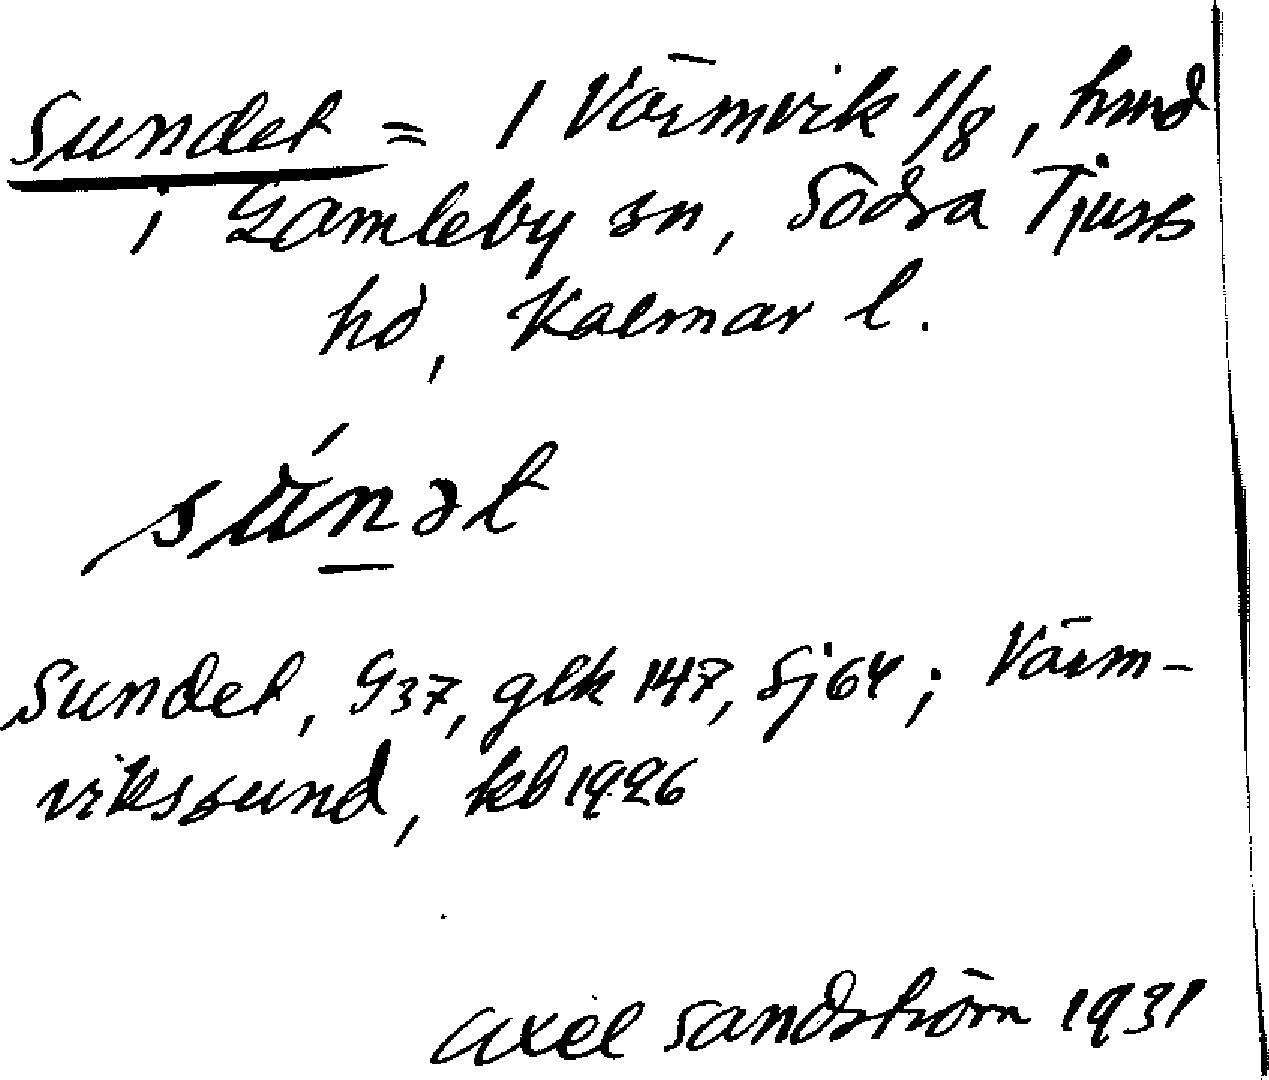 Sundet = 1 Värmvik 1/8, hmd
i Gamleby sn, Södra Tjusts
hd, Kalmar l.
súnət
Sundet, G37, glk 147, Sj64; Värm-
vikssund, kb 1926
Axel Sandström 1931